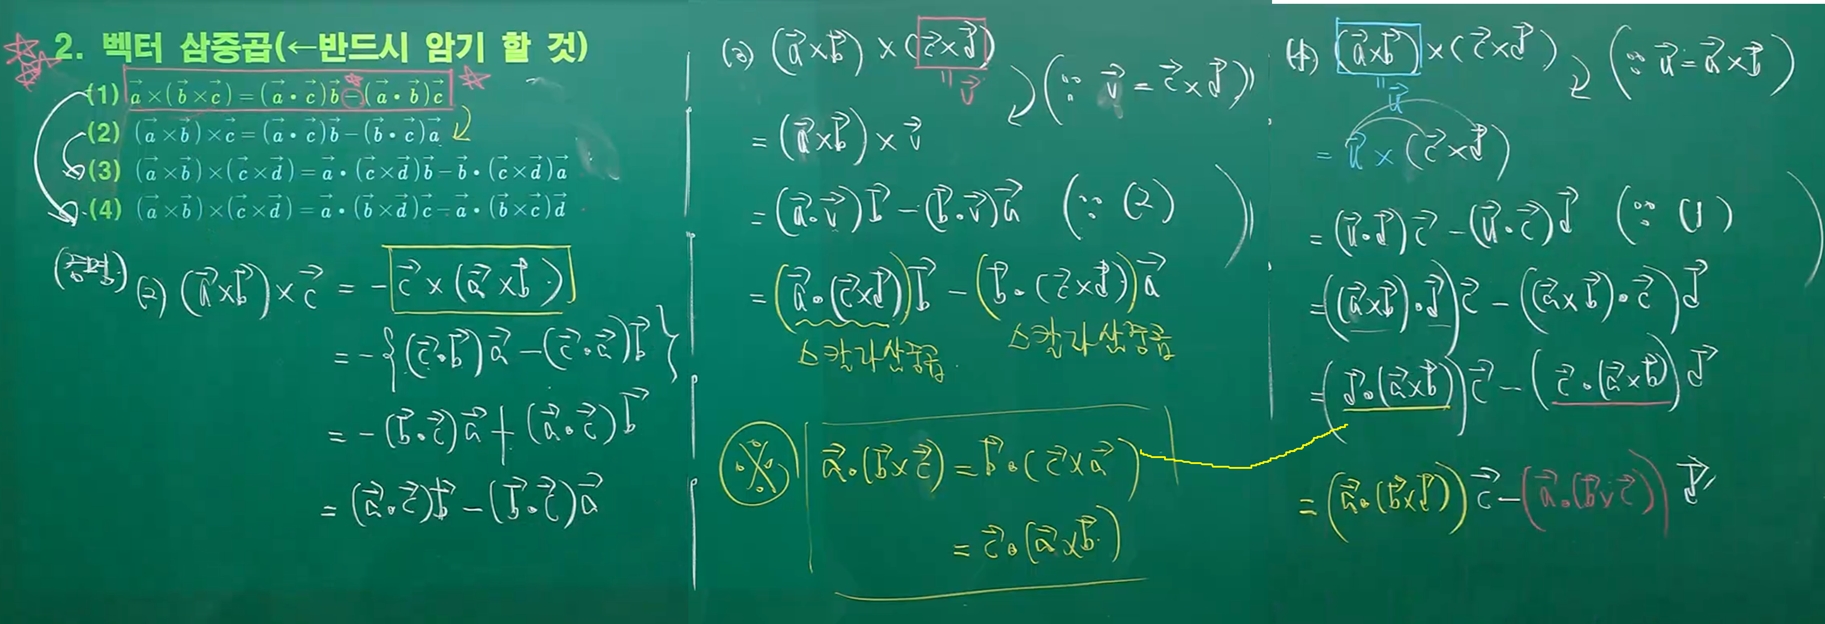 2. 벡터 삼중곱(←반드시 암기 할 것)
(1) $\vec{a}\times(\vec{b}\times\vec{c})=(\vec{a}\cdot\vec{c})\vec{b}-(\vec{a}\cdot\vec{b})\vec{c}$
(2) $(\vec{a}\times\vec{b})\times\vec{c}=(\vec{a}\cdot\vec{c})\vec{b}-(\vec{b}\cdot\vec{c})\vec{a}$
(3) $(\vec{a}\times\vec{b})\times(\vec{c}\times\vec{d})=\vec{a}\cdot(\vec{c}\times\vec{d})\vec{b}-\vec{b}\cdot(\vec{c}\times\vec{d})\vec{a}$
(4) $(\vec{a}\times\vec{b})\times(\vec{c}\times\vec{d})=\vec{a}\cdot(\vec{b}\times\vec{d})\vec{c}-\vec{a}\cdot(\vec{b}\times\vec{c})\vec{d}$
(증명) (2) $(\vec{a}\times\vec{b})\times\vec{c}=-\vec{c}\times(\vec{a}\times\vec{b})$
$=-\{(\vec{c}\cdot\vec{b})\vec{a}-(\vec{c}\cdot\vec{a})\vec{b}\}$
$=-(\vec{b}\cdot\vec{c})\vec{a}+(\vec{a}\cdot\vec{c})\vec{b}$
$=(\vec{a}\cdot\vec{c})\vec{b}-(\vec{b}\cdot\vec{c})\vec{a}$
(3) $(\vec{a}\times\vec{b})\times(\vec{c}\times\vec{d})$
$=\vec{v}$ $(\because \vec{v}=\vec{c}\times\vec{d})$
$=(\vec{a}\times\vec{b})\times\vec{v}$
$=(\vec{a}\cdot\vec{v})\vec{b}-(\vec{b}\cdot\vec{v})\vec{a}$ $(\because (2))$
$=(\vec{a}\cdot(\vec{c}\times\vec{d}))\vec{b}-(\vec{b}\cdot(\vec{c}\times\vec{d}))\vec{a}$
스칼라삼중곱 스칼라삼중곱
※ $\vec{a}\cdot(\vec{b}\times\vec{c})=\vec{b}\cdot(\vec{c}\times\vec{a})$
$=\vec{c}\cdot(\vec{a}\times\vec{b})$
(4) $(\vec{a}\times\vec{b})\times(\vec{c}\times\vec{d})$ $(\because \vec{u}=\vec{a}\times\vec{b})$
$=\vec{u}$
$=\vec{u}\times(\vec{c}\times\vec{d})$
$=(\vec{u}\cdot\vec{d})\vec{c}-(\vec{u}\cdot\vec{c})\vec{d}$ $(\because (1))$
$=((\vec{a}\times\vec{b})\cdot\vec{d})\vec{c}-((\vec{a}\times\vec{b})\cdot\vec{c})\vec{d}$
$=(\vec{d}\cdot(\vec{a}\times\vec{b}))\vec{c}-(\vec{c}\cdot(\vec{a}\times\vec{b}))\vec{d}$
$=(\vec{a}\cdot(\vec{b}\times\vec{d}))\vec{c}-(\vec{a}\cdot(\vec{b}\times\vec{c}))\vec{d}$